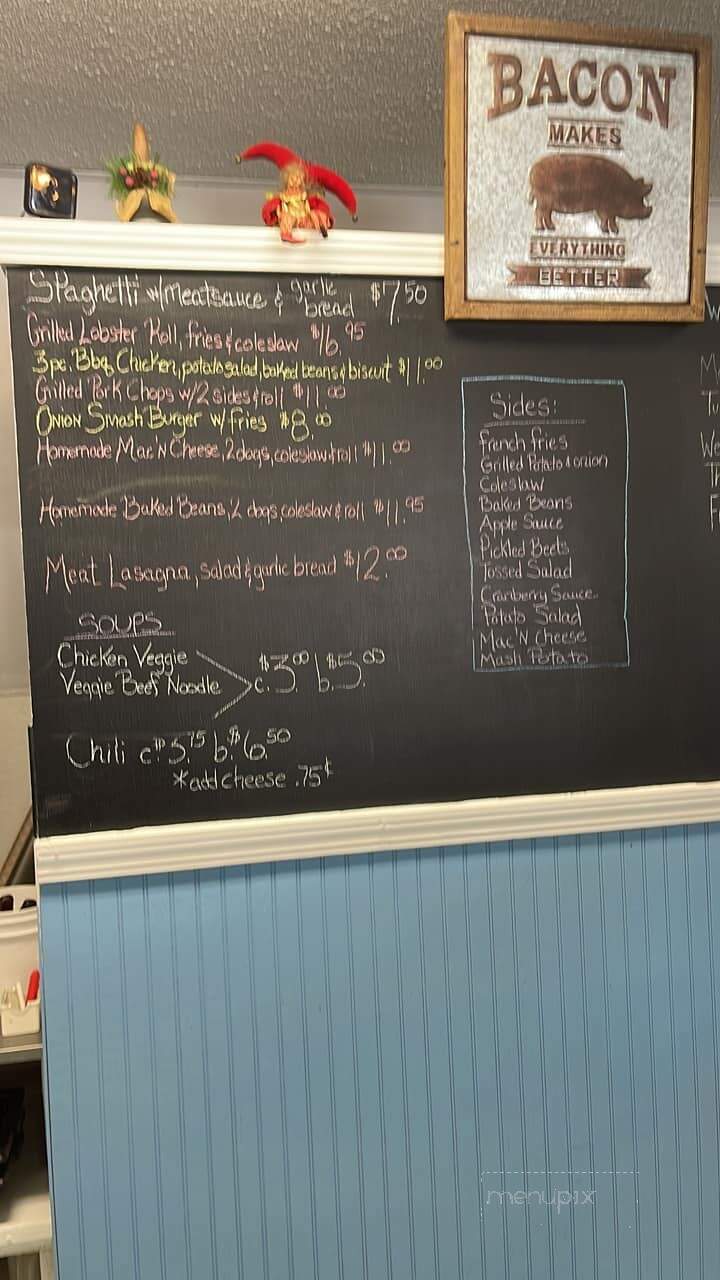 BACON
MAKES
EVERYTHING
BETTER
Spaghetti w/meatsauce & garlic bread $7.50
Grilled Lobster Roll, fries & coleslaw $16.95
3pc. Bbq Chicken, potato salad, baked beans & biscuit $11.00
Grilled Pork Chops w/2 sides & roll $11.00
Onion Smash Burger w/ fries $8.00
Homemade Mac'N Cheese, 2 dogs, coleslaw & roll $11.00
Homemade Baked Beans, 2 dogs, coleslaw & roll $11.95
Meat Lasagna, salad & garlic bread $12.00
SOUPS
Chicken Veggie
Veggie Beef Noodle
c. $3.00 b. $5.00
Chili c. $5.75 b. $6.50
*add cheese .75¢
Sides:
french fries
Grilled Potato & onion
Coleslaw
Baked Beans
Apple Sauce
Pickled Beets
Tossed Salad
Cranberry Sauce
Potato Salad
Mac'N Cheese
Mash Potato
menupix